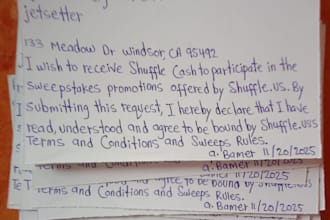 jetsetter
133 Meadow Dr Windsor, CA 95492
I wish to receive Shuffle Cash to participate in the
sweepstakes promotions offered by Shuffle.us. By
submitting this request, I hereby declare that I have
read, understood and agree to be bound by Shuffle.us's
Terms and Conditions and Sweeps Rules.
a. Bamer 11/20/2025
Terms and Conditions and
a. Bamer 11/20/2025
agree to be bound by
Terms and Conditions and Sweeps Rules.
a. Bamer 11/20/2025